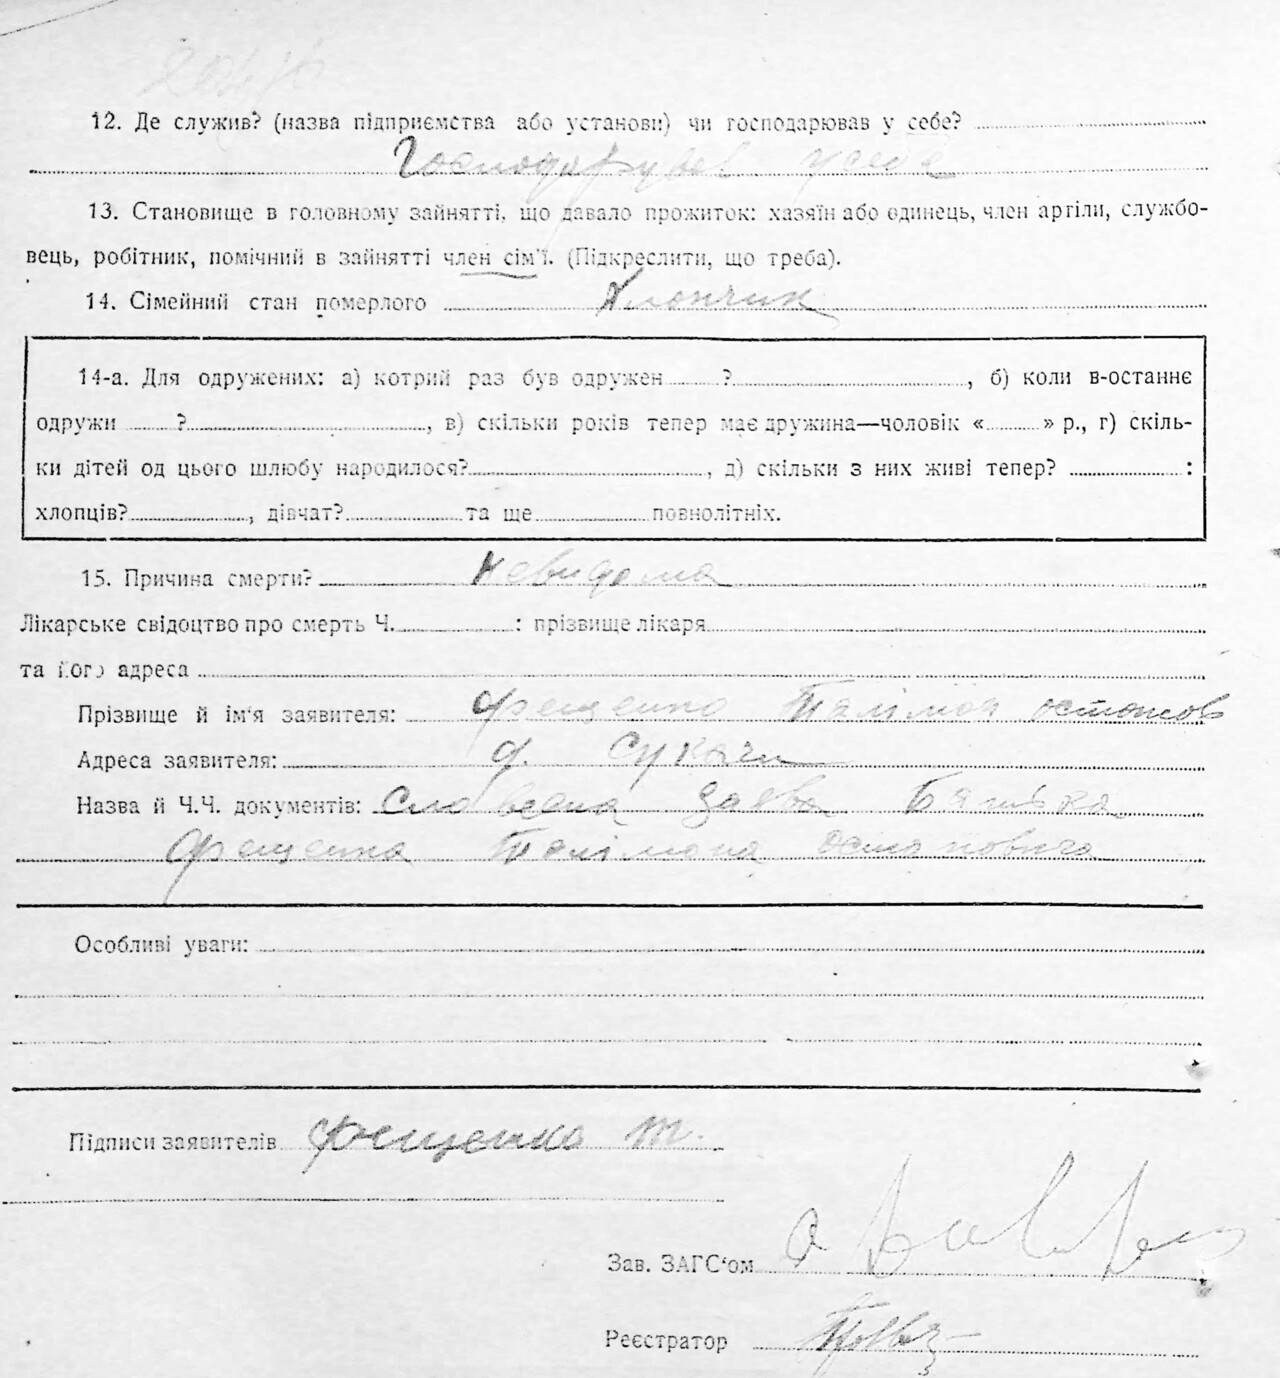 12. Де служив? (назва підприємства або установи) чи господарював у себе?
Господарував у себе
13. Становище в головному зайнятті, що давало прожиток: хазяїн або одинець, член артіли, службо-
вець, робітник, помічний в зайнятті член сім'ї. (Підкреслити, що треба).
14. Сімейний стан померлого Хлопчик
14-а. Для одружених: а) котрий раз був одружен ?, б) коли в-останнє
одружи ?, в) скільки років тепер має дружина—чоловік « » р., г) скіль-
ки дітей од цього шлюбу народилося?, д) скільки з них живі тепер? :
хлопців?, дівчат? та ще повнолітніх.
15. Причина смерти? Невидома
Лікарське свідоцтво про смерть Ч. : прізвище лікаря
та його адреса
Прізвище й ім'я заявителя: Фещенко
Адреса заявителя: с. Сукачи
Назва й Ч.Ч. документів: Словесна заява Батька
Фещенка Остаповича
Особливі уваги:
Підписи заявителів Фещенко Т.
Зав. ЗАГС'ом
Реєстратор